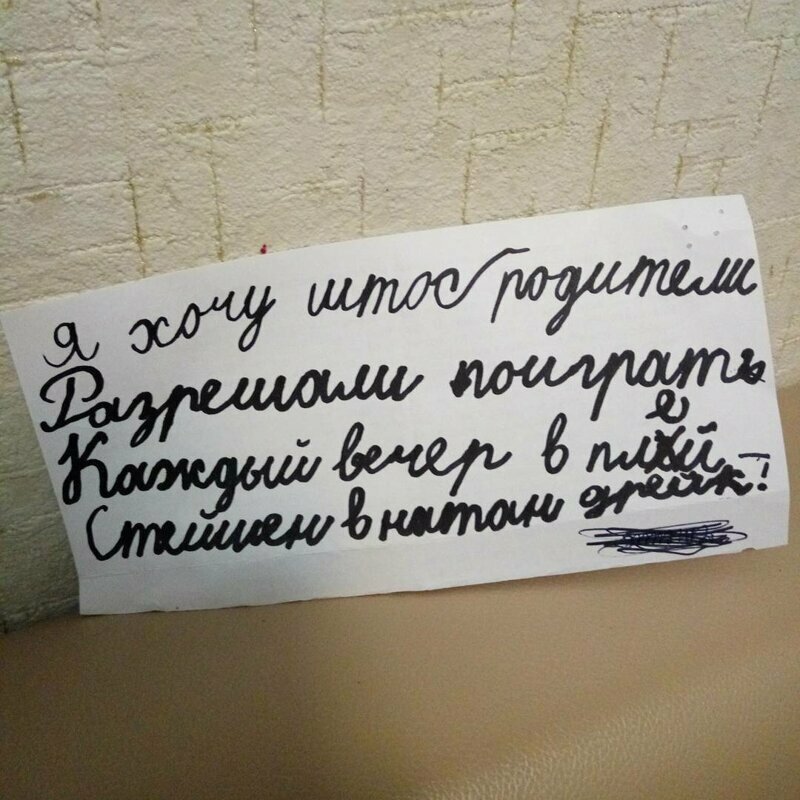 Я хочу штос родители
Разрешали поиграть
Каждый вечер в плей-
Стейшен в натан дрейк!